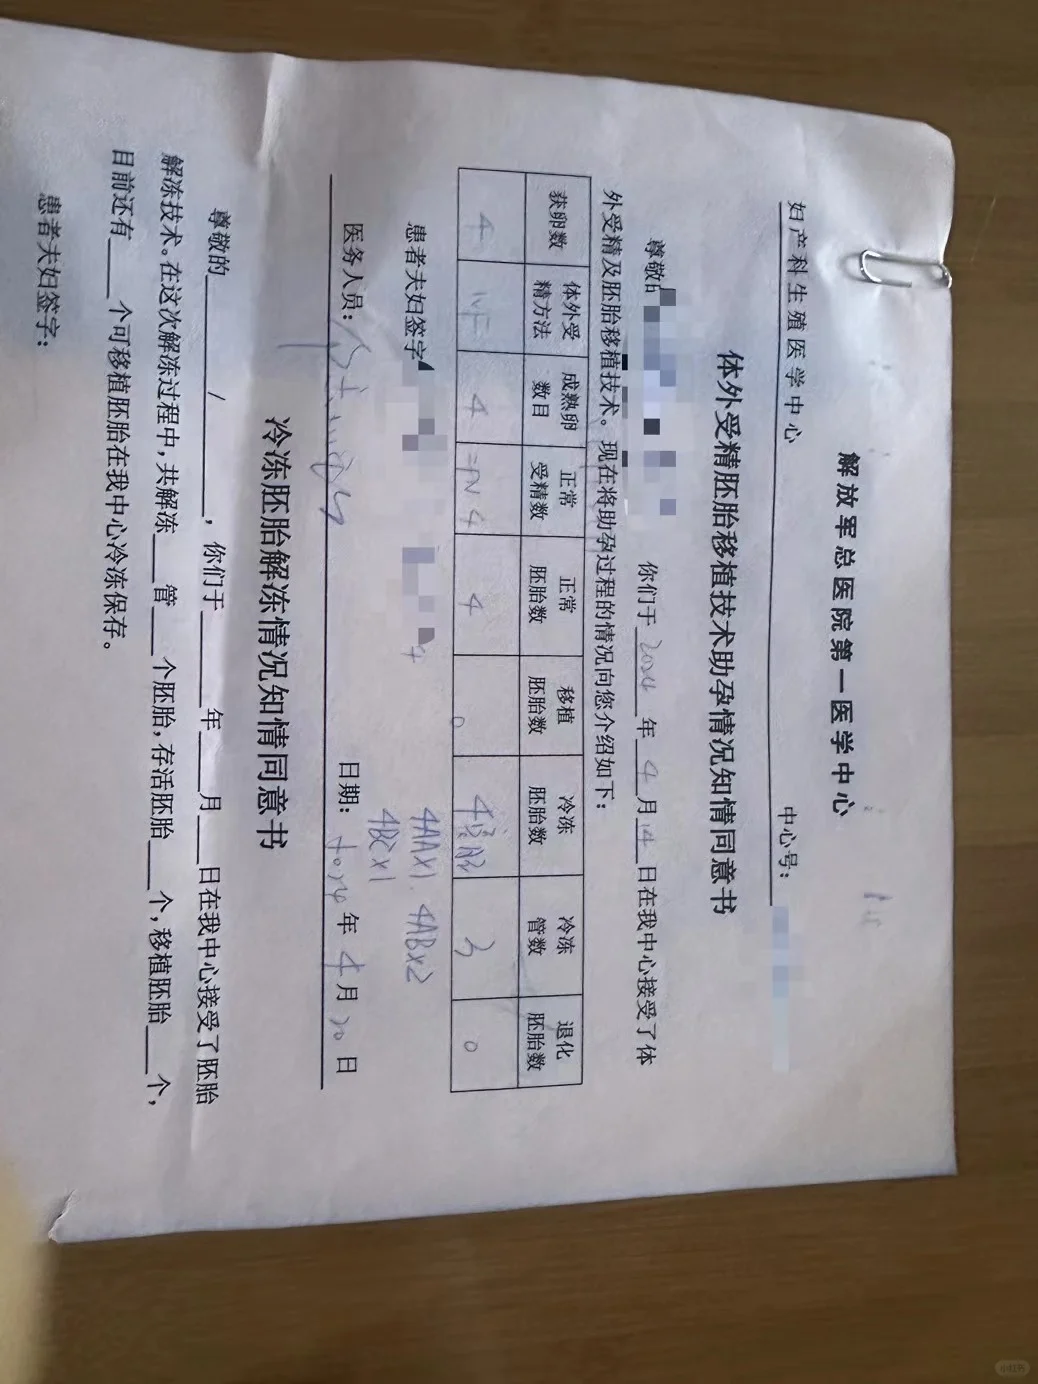 解放军总医院第一医学中心
妇产科生殖医学中心 中心号：
体外受精胚胎移植技术助孕情况知情同意书
尊敬 你们于 2024 年 4 月 14 日在我中心接受了体
外受精及胚胎移植技术。现在将助孕过程的情况向您介绍如下：
获卵数 体外受精方法 成熟卵数目 正常受精数 正常胚胎数 移植胚胎数 冷冻胚胎数 冷冻管数 退化胚胎数
4 IVF 4 =PN 4 4 0 4 3 0
患者夫妇签字 4AAX1. 4ABX2
4BCX1
医务人员： 日期： 2024 年 4 月 20 日
冷冻胚胎解冻情况知情同意书
尊敬的 / ，你们于 年 月 日在我中心接受了胚胎
解冻技术。在这次解冻过程中，共解冻 管 个胚胎，存活胚胎 个，移植胚胎 个，
目前还有 个可移植胚胎在我中心冷冻保存。
患者夫妇签字：
小红书